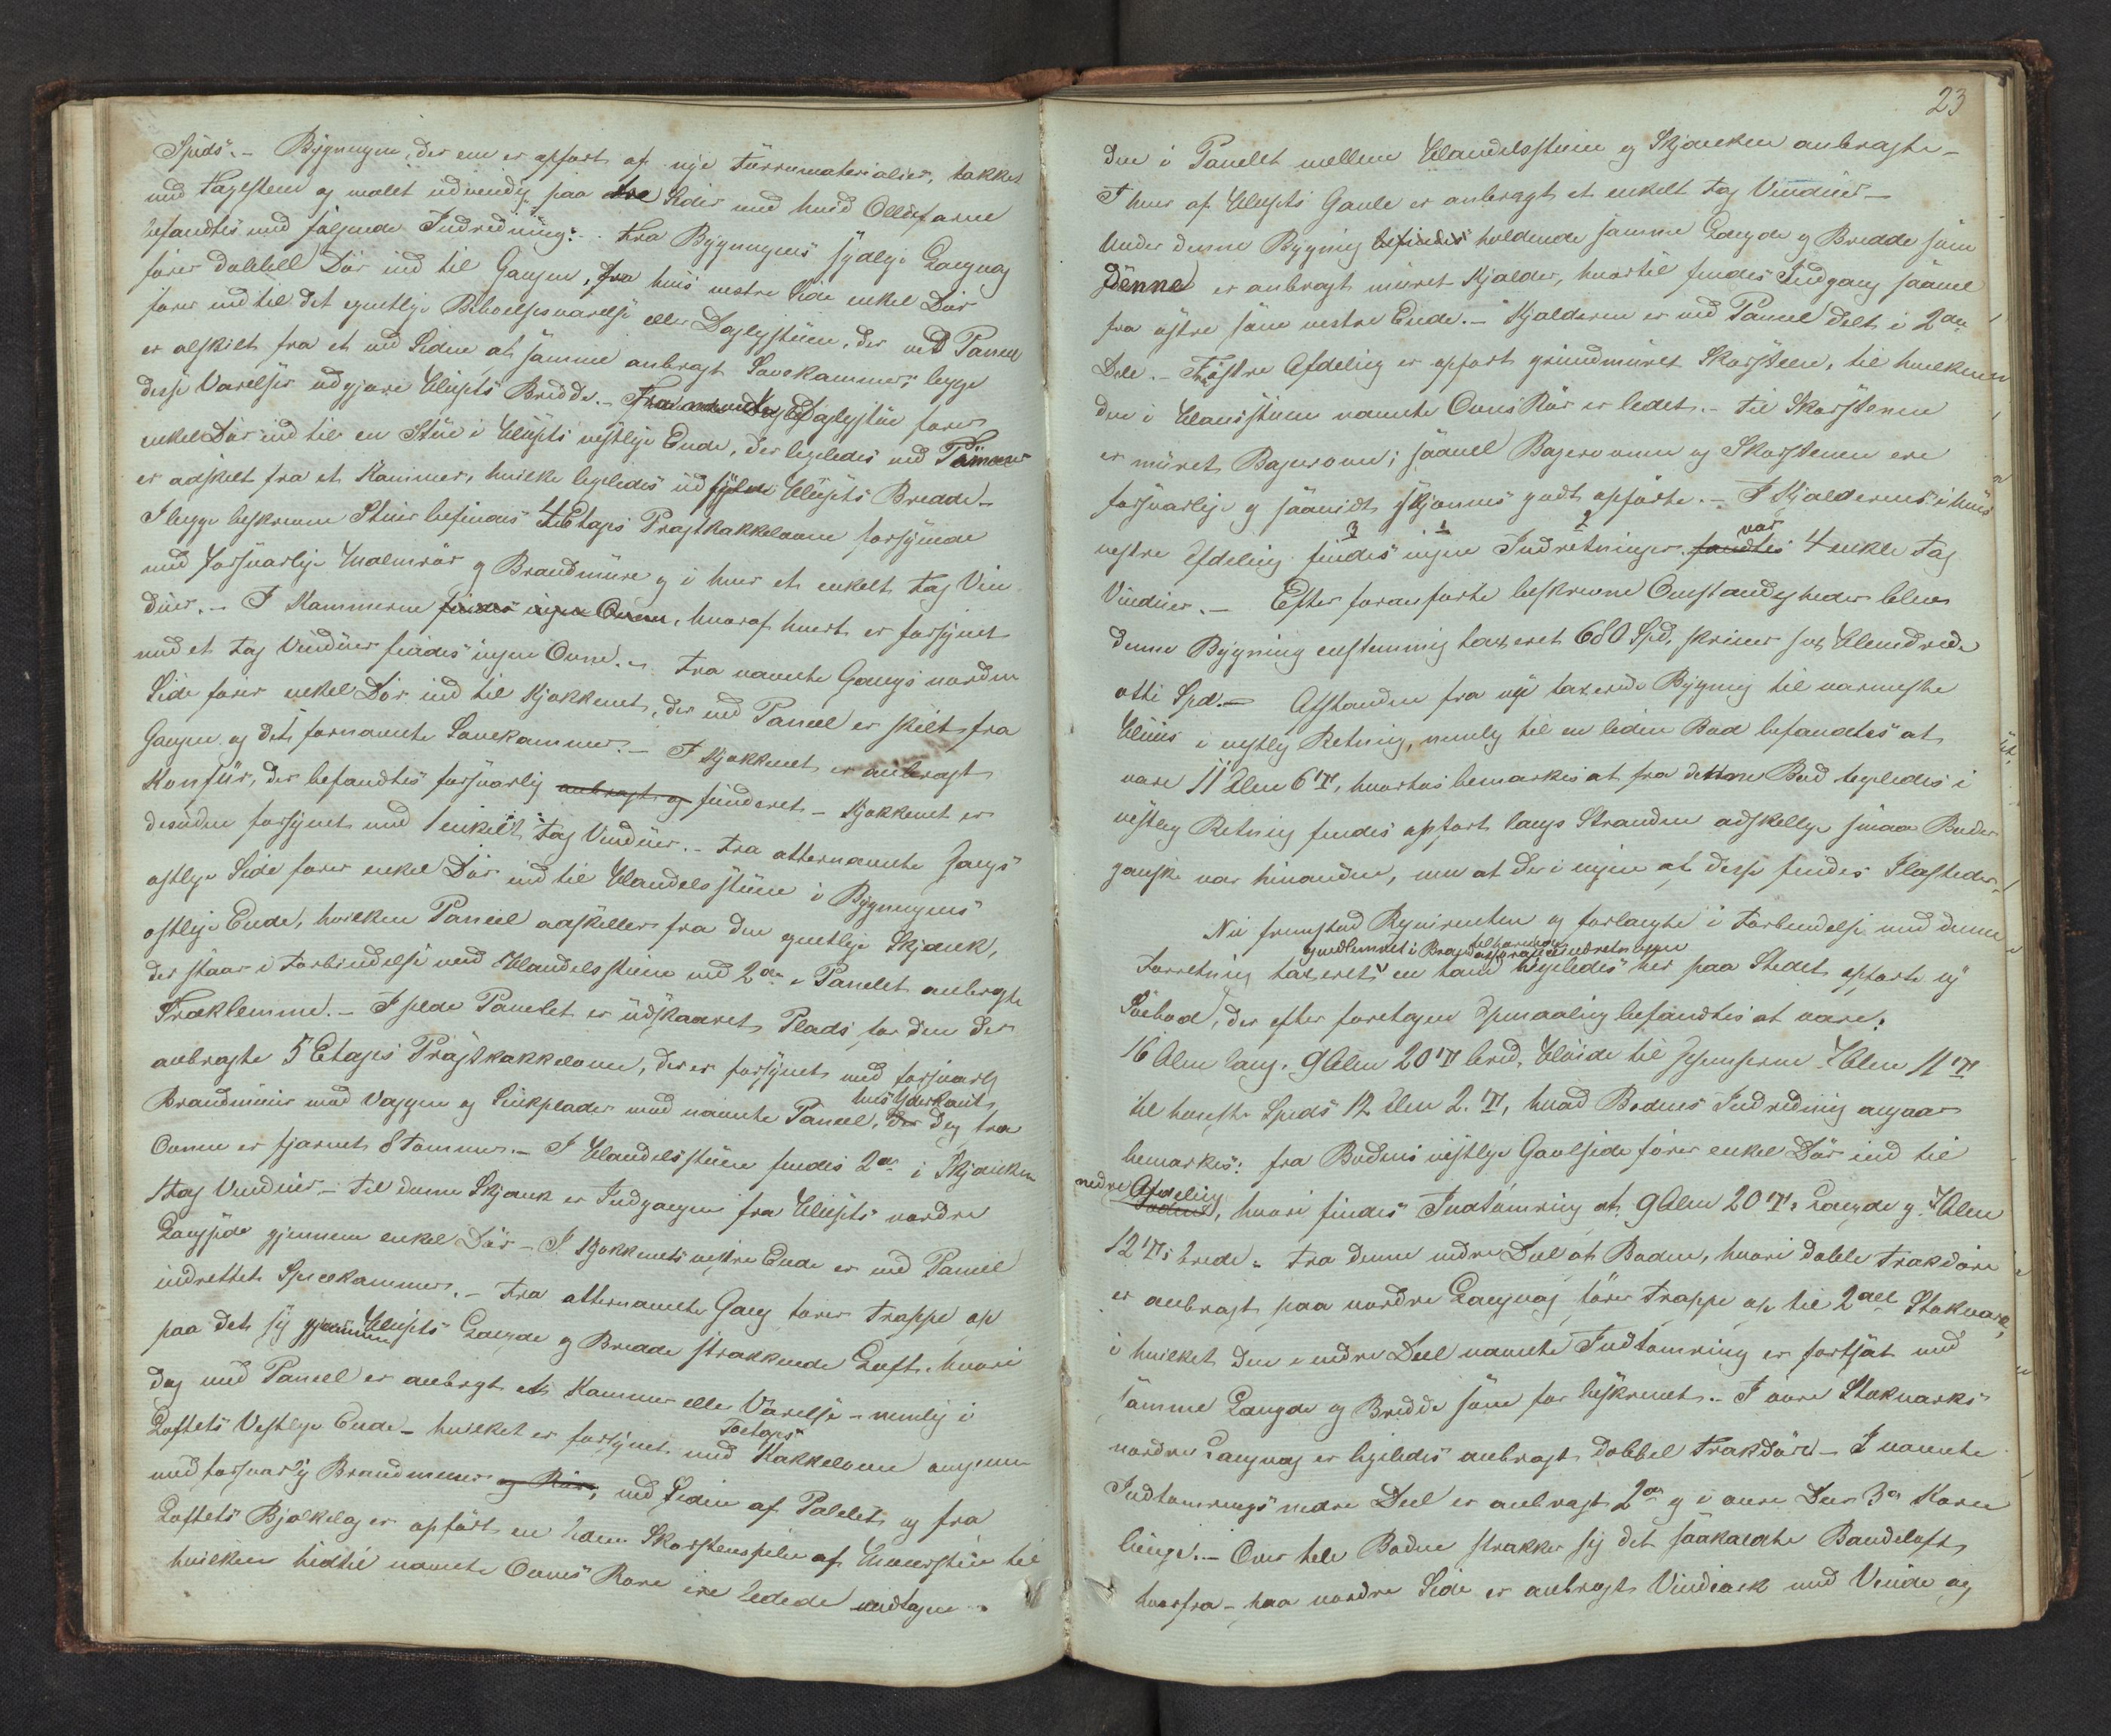 Spids. – Bygningen, der er opført af nye Tørrumaterialier, takket
med Tagsteen og malet udvendig paa tre Sider med hvid Olliefarve
befandtes med følgende Indredning: Fra Bygningens sydlige Langvæg
fører dobbelt Dør ind til Gangen, fra hvis vestre Side enkel Dør
fører ind til det egentlige Beboelsesværelse eller Daglystuen, der ved Paneel
er afskilt fra et ved Siden af samme anbragt Sovekammer; begge
disse Værelser udgjøre Huusets Bredde. – Fra nævnte Daglystue fører
enkel Dør ind til en Stue i Huusets vestlige Ende, der ligeledes ved Paneel
er adskilt fra et Kammer, hvilke ligeledes udfylde Huusets Bredde –
I begge beskrevne Stuer befindes 4 Etages Pragtkakkelovne forsynede
med forsvarlige Malmrør og Brandmure og i hver et enkelt Fag Vin
duer. – I Kammerne findes ingen Ovne, hvoraf hvert er forsynet
med et Fag Vinduer findes ingen Ovne. – Fra nævnte Gangs nordre
Side fører enkel Dør ind til Kjøkkenet, der ved Paneel er skilt fra
Gangen og det fornævnte Sovekammer. – I Kjøkkenet er anbragt
Komfur, der befandtes forsvarlig anbragt og funderet – Kjøkkenet er
desuden forsynet med 1 enkelt Fag Vinduer. – Fra atternævnte Gangs
østlige Side fører enkel Dør ind til Handelsstuen i Bygningens
østlige Ende, hvilken Paneel adskiller fra den egentlige Skjænk,
der staar i Forbindelse med Handelsstuen ved 2de i Panelet anbragte
Træklemme. – I selve Panelet er udskaaret Plads for den der
anbragte 5 Etages Pragtkakkelovn, der er forsynet med forsvarlig
Brandmuur mod Væggen og Sinkplader mod nævnte Paneel, der dog fra
hvis Yderkant
Ovnen er fjærnet 8 Tommer. – I Handelsstuen findes 2de i Skjænken
1 Fag Vinduer – Til denne Skjænk er Indgangen fra Huusets nordre
Langside gjennem enkel Dør – I Kjøkkenets vestre Ende er med Paneel
indrettet Spiseskammer. – Fra atternævnte Gang fører Trappe op
paa det sig gjennem Huusets Længde og Bredde strækkende Loft, hvori
dog med Paneel er anbragt et Kammer eller Værelse – nemlig i
Loftets Vestlige Ende – hvilket er forsynet med Toetages Kakkelovn
med forsvarlig Brandmuur og Rør, ved Siden af Paletet, og fra
Loftets Bjælkelag er opført en Skorsteenspibe af Muursteen til
hvilken hidtil nævnte Ovnes Røre ere ledede undtagen
23
den i Panelet mellem Handelsstuen og Skjænken anbragte –
I hver af Huusets Gavle er anbragt et enkelt Fag Vinduer –
Under denne Bygning befindes holdende samme Længde og Bredde som
denne er anbragt muret Kjælder, hvortil findes Indgang saavel
fra østre som vestre Ende. – Kjælderen er ved Paneel delt i 2de
Dele. – Fra østre Afdeling er opført grundmuret Skorsteen, til hvilken
den i Handelsstuen nævnte Ovns Rør er ledet. – Til Skorstenen
er muret Bagerovn; saavel Bagerovnen og Skorstenen ere
forsvarlige og saavidt skjønnes godt opførte. – I Kjælderens i hvis
vestre Afdeling findes ingen Indretninger fandtes var 4 enkle Fag
Vinduer. – Efter foranførte beskrevne Omstændigheder blev
denne Bygning enstemmig taxeret 680 Spd, skriver sex Hundrede
otti Spd. – Afstanden fra nys taxerede Bygning til nærmeste
Huus i vestlig Retning, nemlig til en liden Bod befandtes at
være 11 Alen 6 T, hvorhos bemærkes at fra denne Bod ligeledes i
vestlig Retning findes opført langs Stranden adskellige smaa Boder
ganske nær hinanden, men at der i ingen af disse findes Ildsteder. –
Nu fremstod Rqvirenten og forlangte i Forbindelse med denne
Forretning taxeret en ham tilhørende ligeledes her paa Stedet opført ny
Søebod, der efter foretagen Opmaaling befandtes at være:
16 Alen lang. 9 Alen 20 T bred, Høide til Gesimserne 7 Alen 11 T
til høieste Spids 12 Alen 2. T, hvad Bodens Indredning angaar
bemærkes: fra Bodens vestlige Gavlside fører enkel Dør ind til
nedre Afdeling Bodens, hvori findes Indtømring af 9 Alen 20 T. Længde og 7 Alen
12 T. brede. Fra denne nedre Deel af Boden, hvori doble Trækdøre
er anbragt paa nordre Langvæg, fører Trappe op til 2det Stokværk,
i hvilket den i nedre Deel nævnte Indtømring er fortsat med
samme Længde og Bredde som før beskrevet. – I øvre Stokværks
nordre Langvæg er ligeledes anbragt dobbel Trækdøre – I nævnte
Indtømrings nedre Deel er anbragt 2de og i øvre Deel 3de Korn
binge. – Over hele Boden strækker sig det saakaldte Bandeloft,
hvorfra – paa nordre Side er anbragt Vindeark med Vinde og